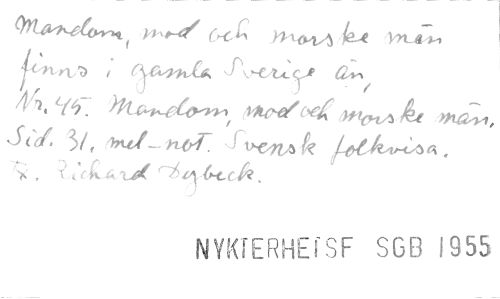 Mandom, mod och morske män
finns i gamla Sverige än,
Nr. 45. Mandom, mod och morske män.
Sid. 31. mel-not. Svensk folkvisa.
Tx. Richard Dybeck.
NYKTERHETSF SGB 1955